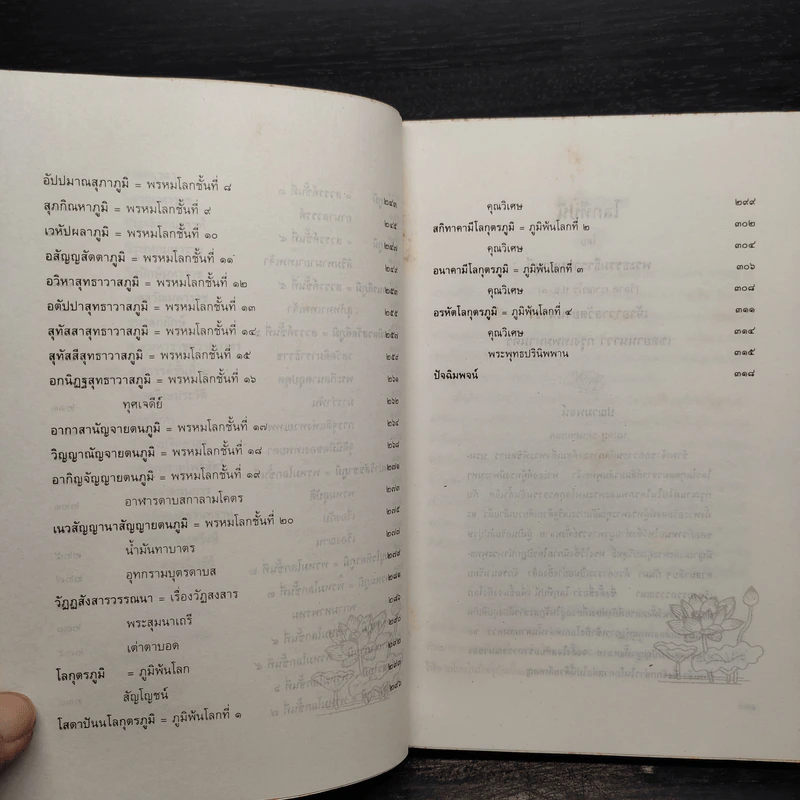 อัปปมาณสุภาภูมิ = พรหมโลกชั้นที่ ๘ ๒๔๓
สุภกิณหาภูมิ = พรหมโลกชั้นที่ ๙ ๒๔๕
เวหัปผลาภูมิ = พรหมโลกชั้นที่ ๑๐ ๒๔๗
อสัญญสัตตาภูมิ = พรหมโลกชั้นที่ ๑๑ ๒๔๙
อวิหาสุทธาวาสภูมิ = พรหมโลกชั้นที่ ๑๒ ๒๕๓
อตัปปาสุทธาวาสภูมิ = พรหมโลกชั้นที่ ๑๓ ๒๕๕
สุทัสสาสุทธาวาสภูมิ = พรหมโลกชั้นที่ ๑๔ ๒๕๗
สุทัสสีสุทธาวาสภูมิ = พรหมโลกชั้นที่ ๑๕ ๒๕๙
อกนิฏฐสุทธาวาสภูมิ = พรหมโลกชั้นที่ ๑๖ ๒๖๑
ทุศเจดีย์ ๒๖๒
อากาสานัญจายตนภูมิ = พรหมโลกชั้นที่ ๑๗ ๒๖๔
วิญญาณัญจายตนภูมิ = พรหมโลกชั้นที่ ๑๘ ๒๖๘
อากิญจัญญายตนภูมิ = พรหมโลกชั้นที่ ๑๙ ๒๗๑
อาฬารดาบสกาลามโคตร ๒๗๓
เนวสัญญานาสัญญายตนภูมิ = พรหมโลกชั้นที่ ๒๐ ๒๗๕
น้ำมันทาบาตร ๒๗๗
อุทกรามบุตรดาบส ๒๗๙
วัฏฏสังสารวรรณนา = เรื่องวัฏสงสาร ๒๘๑
พระสุมนาเถรี
เต่าตาบอด ๒๙๐
โลกุตรภูมิ = ภูมิพ้นโลก ๒๙๒
สัญโญชน์ ๒๙๓
โสดาปันนโลกุตรภูมิ = ภูมิพ้นโลกที่ ๑ ๒๙๖
คุณวิเศษ ๒๙๙
สกิทาคามีโลกุตรภูมิ = ภูมิพ้นโลกที่ ๒ ๓๐๒
คุณวิเศษ ๓๐๔
อนาคามีโลกุตรภูมิ = ภูมิพ้นโลกที่ ๓ ๓๐๖
คุณวิเศษ ๓๐๘
อรหัตโลกุตรภูมิ = ภูมิพ้นโลกที่ ๔ ๓๑๑
คุณวิเศษ ๓๑๔
พระพุทธปรินิพพาน ๓๑๕
ปัจฉิมพจน์ ๓๑๘